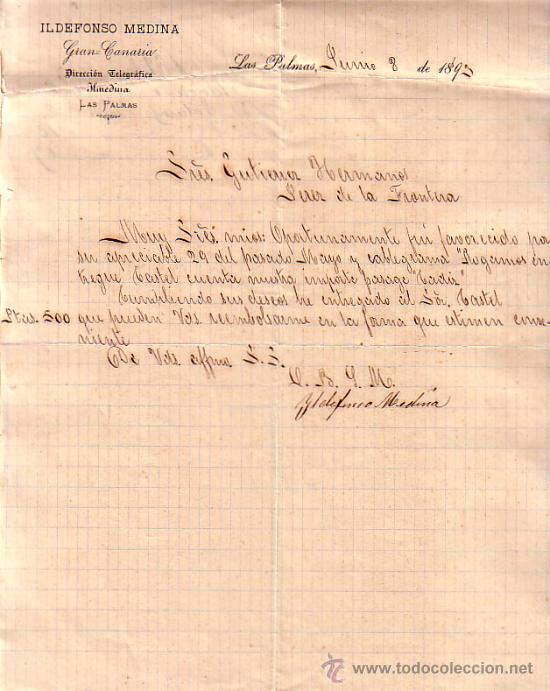 ILDEFONSO MEDINA
Gran Canaria
Dirección Telegráfica
Ilmedina
LAS PALMAS
Las Palmas, Junio 8 de 1893
Sres. Gutierrez Hermanos
Jerez de la Frontera
Muy Sres. mios: Oportunamente fui favorecido por
su apreciable 29 del pasado Mayo y cablegrama "Rogamos en
tregue Castel cuenta nuestra importe pasage Cadiz"
Cumpliendo sus deseos he entregado al Sr. Castel
Ptas. 500 que pueden Vds. reembolsarme en la forma que estimen conve-
niente
De Vds. affmo. S. S.
Q. B. S. M.
Yldefonso Medina
www.todocoleccion.net